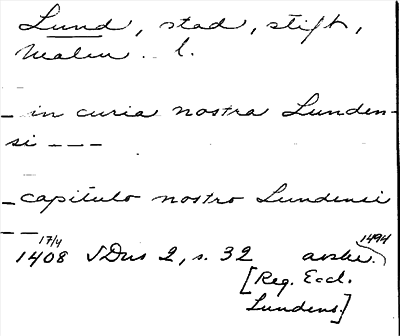 Lund, stad, stift,
Malm. l.
– in curia nostra Lunden-
si – – –
– capitulo nostro Lundensi
– –
17/4 1494
1408 SDns 2, s. 32 avskr.
[Reg. Eccl.
Lundens.]